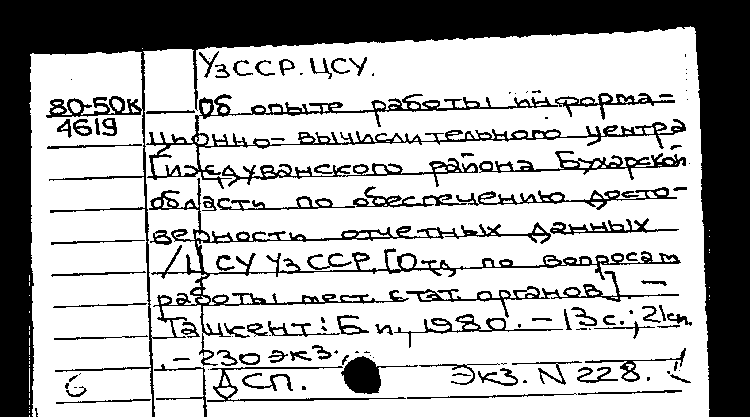 УзССР. ЦСУ.
80-50к Об опыте работы информа=
4619 ционно=вычислительного центра
Гиждуванского района Бухарской
области по обеспечению досто-
верности отчетных данных
/ЦСУ УзССР, [Отд. по вопросам
работы мест. стат. органов]. –
Ташкент: Б.и., 1980. – 13 с.; 21 см.
. – 230 экз.
6 ДСП. Экз. N 228.